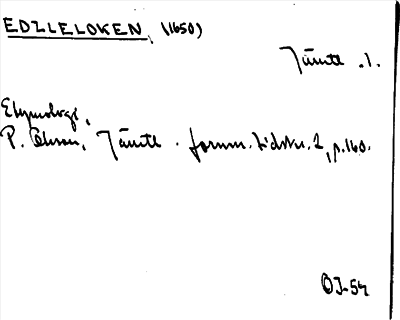 EDZLELOKEN, (1650)
Jämtl. l.
Etymologi.
P. Olsson, Jämtl. fornm. tidskr. 2, p. 160.
OJ-54